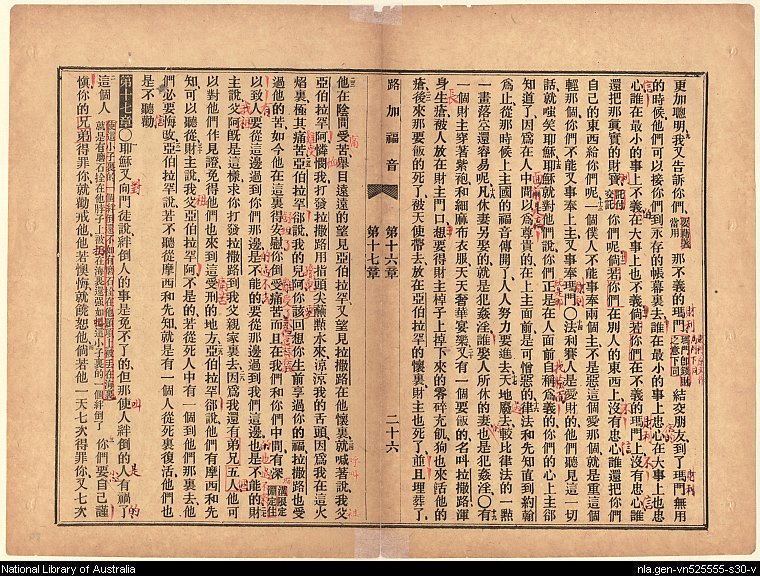 更加聰明我又告訴你們要勤儉當用那不義的瑪門瑪門卽錢財之意下同結交朋友到了瑪門無用
的時候他們可以接你們到永存的帳幕裏去誰在最小的事上忠心在大事上也忠
心誰在最小的事上不義在大事上也不義倘若你們在不義的瑪門上沒有忠心誰
還把那眞實的財寶託付你們呢倘若你們在別人的東西上沒有忠心誰還把你們
自己的東西給你們呢一個僕人不能事奉兩個主不是惡這個愛那個就是重這個
輕那個你們不能又事奉上主又事奉瑪門〇法利賽人是愛財的他們聽見這一切
話就嗤笑耶穌耶穌就對他們說你們正是在人面前自稱爲義的你們的心上主卻
知道了因爲在人中間以爲尊貴的在上主面前是可憎惡的律法和先知直到約翰
爲止從那時候上主國的福音傳開了人人努力要進去天地廢去較比律法的一點
一畫落空還容易呢凡休妻另娶的就是犯姦淫誰娶人所休的妻也是犯姦淫〇有
一個財主穿著紫袍和細麻布衣服天天奢華宴樂又有一個要飯的名叫拉撒路渾
身生瘡被人放在財主門口想要得財主棹子上掉下來的零碎充飢狗也來餂他的
瘡後來那要飯的死了被天使帶去放在亞伯拉罕的懷裏財主也死了並且埋葬了
路加福音 第十六章 第十七章 二十六
他在陰間受苦舉目遠遠的望見亞伯拉罕又望見拉撒路在他懷裏就喊著說我父
亞伯拉罕阿憐憫我打發拉撒路用指頭尖蘸點水來涼涼我的舌頭因爲我在這火
焰裏極其痛苦亞伯拉罕卻說我的兒阿你該回想你生前享過你的福拉撒路也受
過他的苦如今他在這裏得安慰你倒受痛苦而且在我們和你們中間有深淵限定
以致人要從這邊過到你們那邊是不能的要從那邊過到我們這邊也是不能的財
主說父阿既是這樣求你打發拉撒路到我父親家裏去因爲我還有弟兄五人他可
以對他們作見證免得他們也來到這受刑的地方亞伯拉罕卻說他們有摩西和先
知可以聽從財主說我父亞伯拉罕阿不是的若從死人中有一個到他們那裏去他
們必要悔改亞伯拉罕說若不聽從摩西和先知就是有一個人從死裏復活他們也
是不聽勸
第十七章〇耶穌又向門徒說絆倒人的事是免不了的但那使人絆倒的人有禍了
這個人就是有磨石拴在他脖子上被扔在海裏還強如把這小子裏的一個絆倒了你們要自己謹
愼你的兄弟得罪你就勸戒他他若懊悔就饒恕他倘若他一天七次得罪你又七次
National Library of Australia
nla.gen-vn525555-s30-v